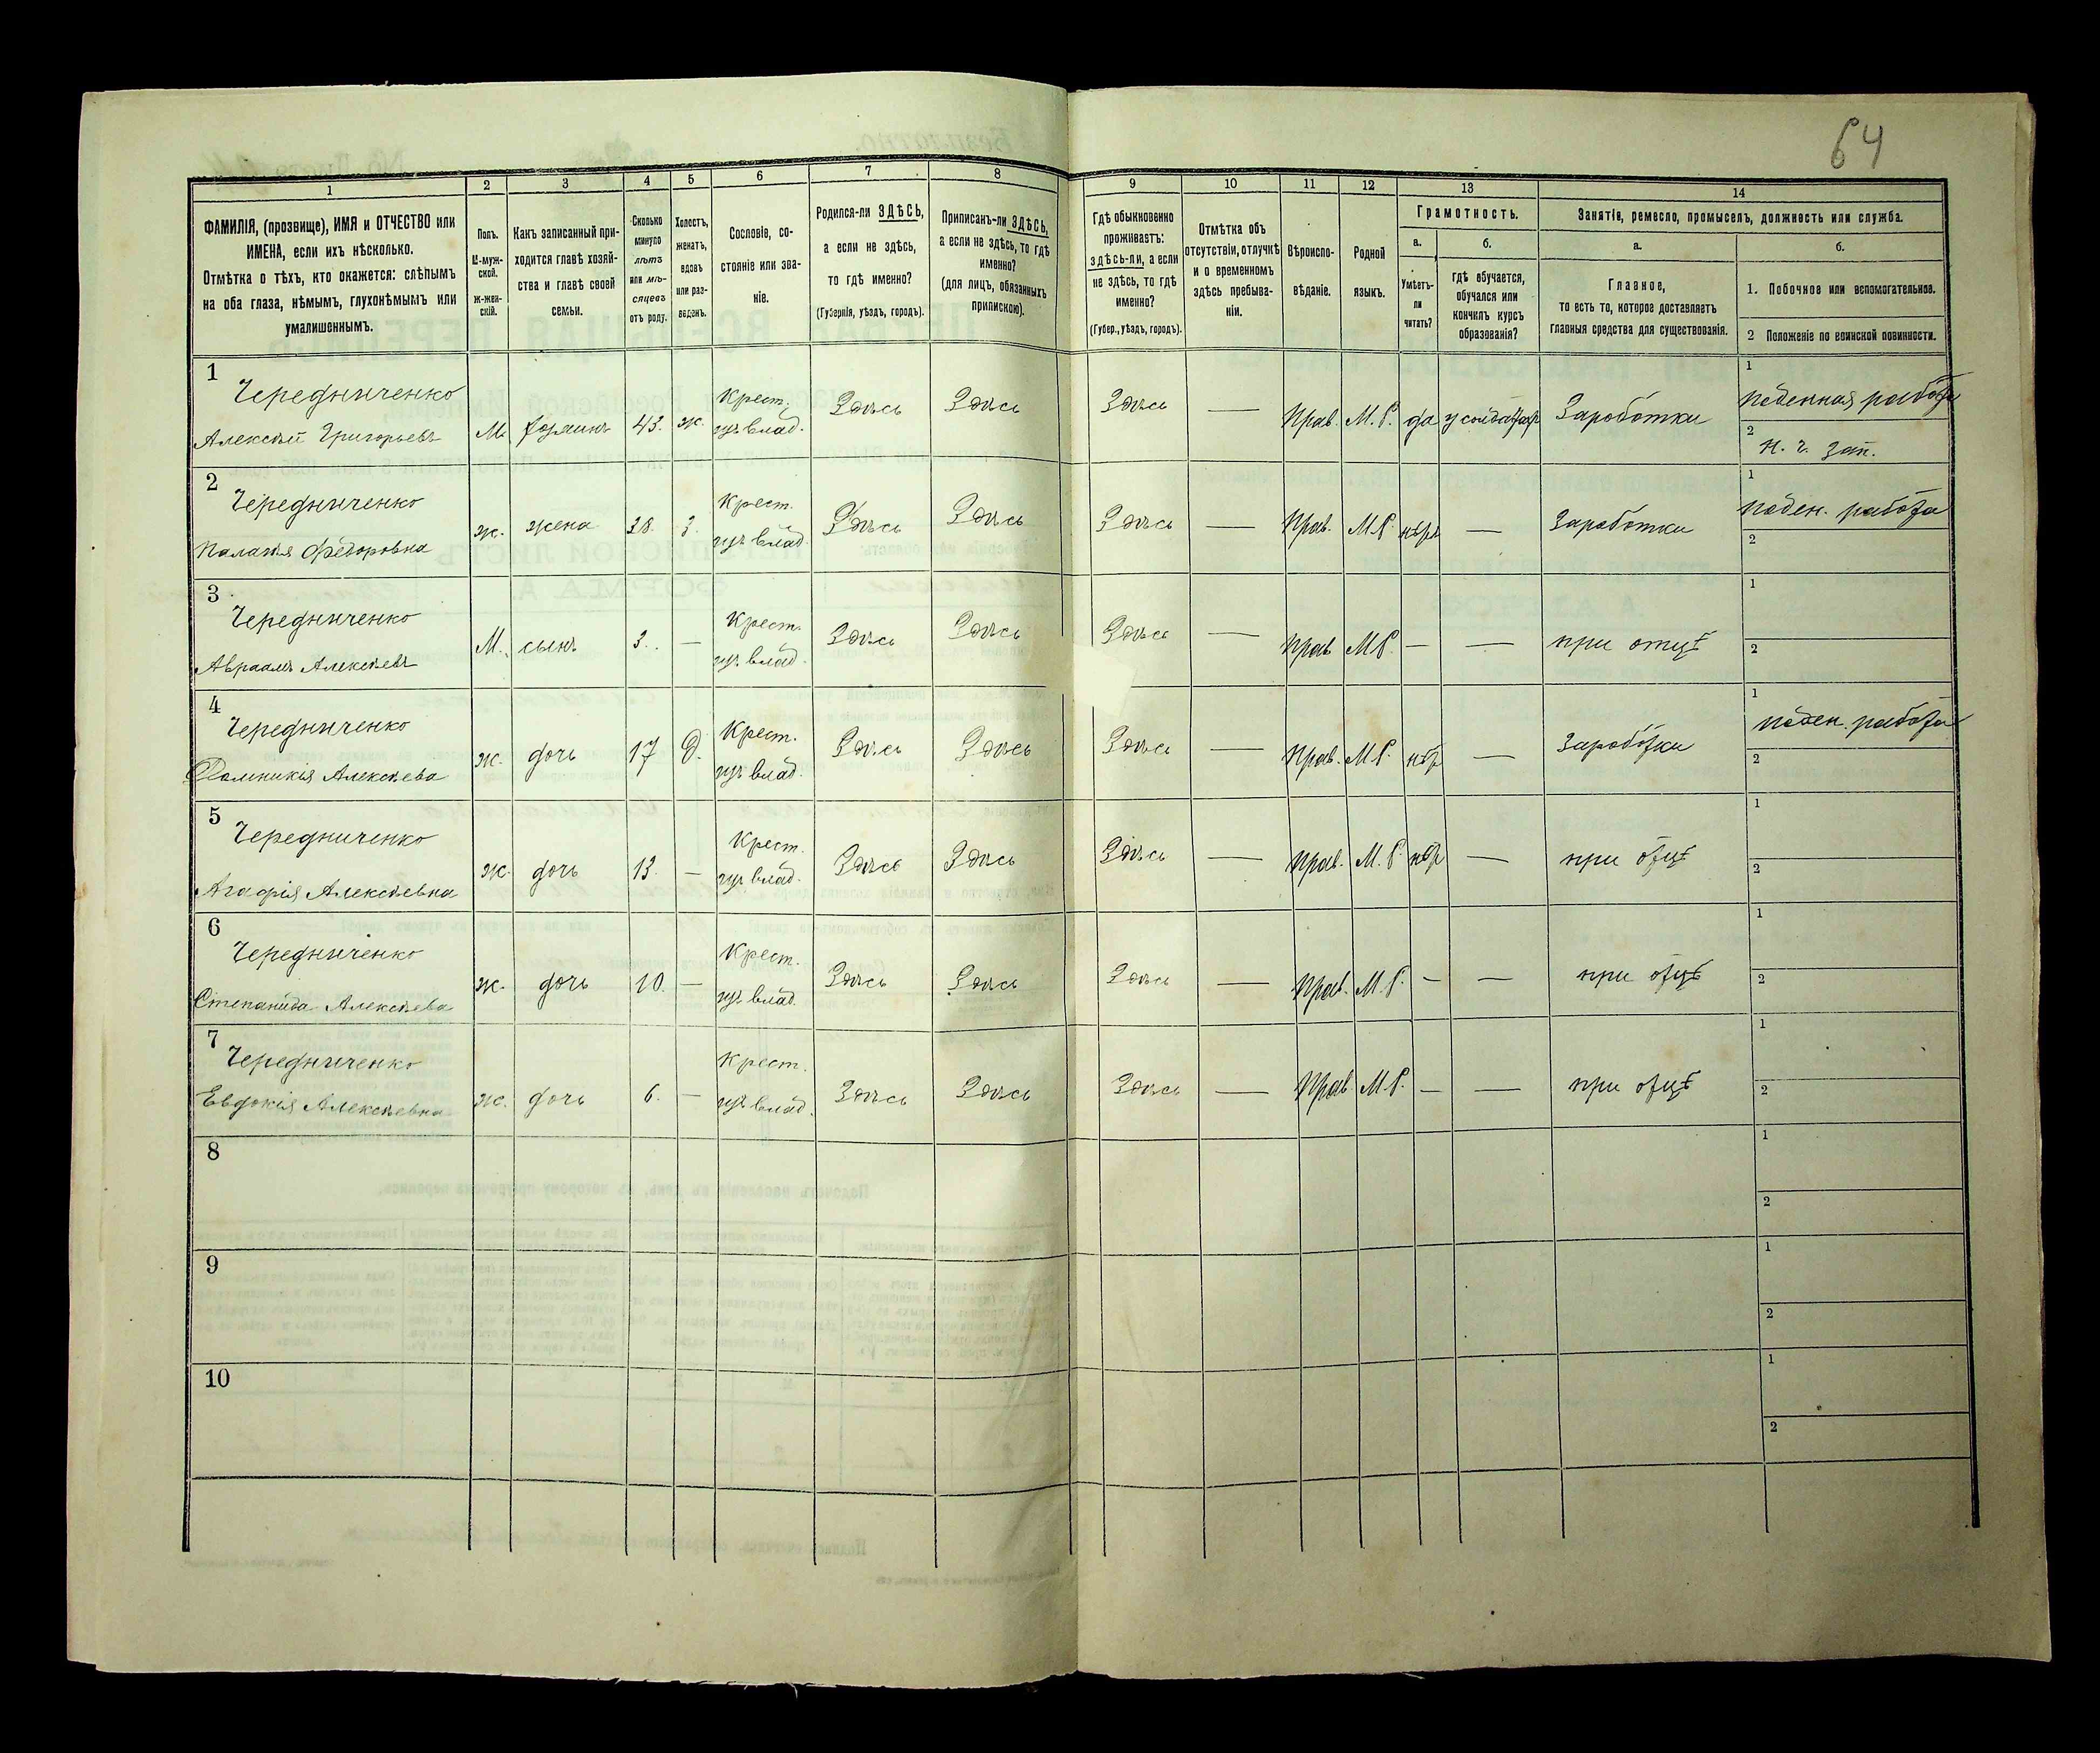 64
1
2
3
4
5
6
7
8
9
10
11
12
13
14
ФАМИЛІЯ, (прозвище), ИМЯ и ОТЧЕСТВО или
ИМЕНА, если ихъ нѣсколько.
Отмѣтка о тѣхъ, кто окажется: слѣпымъ
на оба глаза, нѣмымъ, глухонѣмымъ или
умалишеннымъ.
Полъ.
М-муж-
ской.
ж-жен-
скій.
Какъ записанный при-
ходится главѣ хозяй-
ства и главѣ своей
семьи.
Сколько
минуло
лѣтъ
или мѣ-
сяцевъ
отъ роду.
Холостъ,
женатъ,
вдовъ
или раз-
веденъ.
Сословіе, со-
стояніе или зва-
ніе.
Родился-ли ЗДѢСЬ,
а если не здѣсь,
то гдѣ именно?
(Губернія, уѣздъ, городъ).
Приписанъ-ли ЗДѢСЬ,
а если не здѣсь, то гдѣ
именно?
(для лицъ, обязанныхъ
припискою).
Гдѣ обыкновенно
проживаетъ:
здѣсь-ли, а если
не здѣсь, то гдѣ
именно?
(Губер., уѣздъ, городъ).
Отмѣтка объ
отсутствіи, отлучкѣ
и о временномъ
здѣсь пребыва-
ніи.
Вѣроиспо-
вѣданіе.
Родной
языкъ.
Грамотность.
а.
Умѣетъ-
ли
читать?
б.
гдѣ обучается,
обучался или
кончилъ курсъ
образованія?
Занятіе, ремесло, промыселъ, должность или служба.
а.
Главное,
то есть то, которое доставляетъ
главныя средства для существованія.
б.
1. Побочное или вспомогательное.
2 Положеніе по воинской повинности.
1
Чередниченко
Алексѣй Григорьевъ
М.
хозяинъ
43.
ж.
Крест.
влад.
Здѣсь
Здѣсь
Здѣсь
—
Прав.
М. Р.
да
у солдатах
Заработки
1
поденная работа
2
н. ч. зап.
2
Чередниченко
Палагія Федоровна
ж.
жена
38.
З.
Крест.
влад.
Здѣсь
Здѣсь
Здѣсь
—
Прав.
М.Р.
—
Заработки
1
поден. работа
2
3
Чередниченко
Авраамъ Алексѣевъ
М.
сынъ
3.
—
Крест.
влад.
Здѣсь
Здѣсь
Здѣсь
—
Прав
М.Р.
—
—
при отцѣ
1
2
4
Чередниченко
Домникія Алексѣева
ж.
дочь
17
Д.
Крест.
влад.
Здѣсь
Здѣсь
Здѣсь
—
Прав.
М.Р.
—
Заработки
1
поден. работа
2
5
Чередниченко
Агафія Алексѣевна
ж.
дочь
13.
—
Крест.
влад.
Здѣсь
Здѣсь
Здѣсь
—
Прав.
М. Р.
—
при отцѣ
1
2
6
Чередниченко
Степанида Алексѣева
ж.
дочь
10.
—
Крест.
влад.
Здѣсь
Здѣсь
Здѣсь
—
Прав.
М.Р.
—
—
при отцѣ
1
2
7
Чередниченко
Евдокія Алексѣевна
ж.
дочь
6.
—
Крест.
влад.
Здѣсь
Здѣсь
Здѣсь
—
Прав
М.Р.
—
—
при отцѣ
1
2
8
1
2
9
1
2
10
1
2